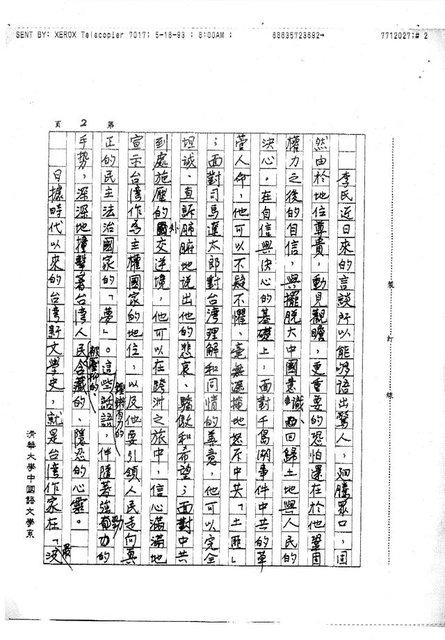 SENT BY: XEROX Telecopier 7017; 5-16-93 ; 8:00AM ; 88635723692→ 7712027;# 2
裝訂線
第 2 頁
李氏近日來的言談所以能夠語出驚人,騰眾口,固
然由於地位尊貴,動見觀瞻,更重要的恐怕還在於他鞏固
權力之後的自信,與擺脫大中國意識而回歸土地與人民的
決心。在自信與決心的基礎上,面對千島湖事件中共的草
菅人命,他可以不疑不懼、毫無遮掩地怒斥中共「土匪」
;面對司馬遼太郎對台灣理解和同情的善意,他可以完全
坦誠、直訴肺腑地說出他的悲哀、驕傲和希望;面對中共
到處施壓的外交逆境,他可以在跨洲之旅中,信心滿滿地
宣示台灣作為主權國家的地位,以及他要引領人民走向真
正的民主法治國家的「夢」。這些鏗鏘有力的話語,伴隨著強勁的
手勢,深深地撞擊著台灣人民被壓抑的、隱忍的心靈。
日據時代以來的台灣新文學史,就是台灣作家在「
清華大學中國語文學系